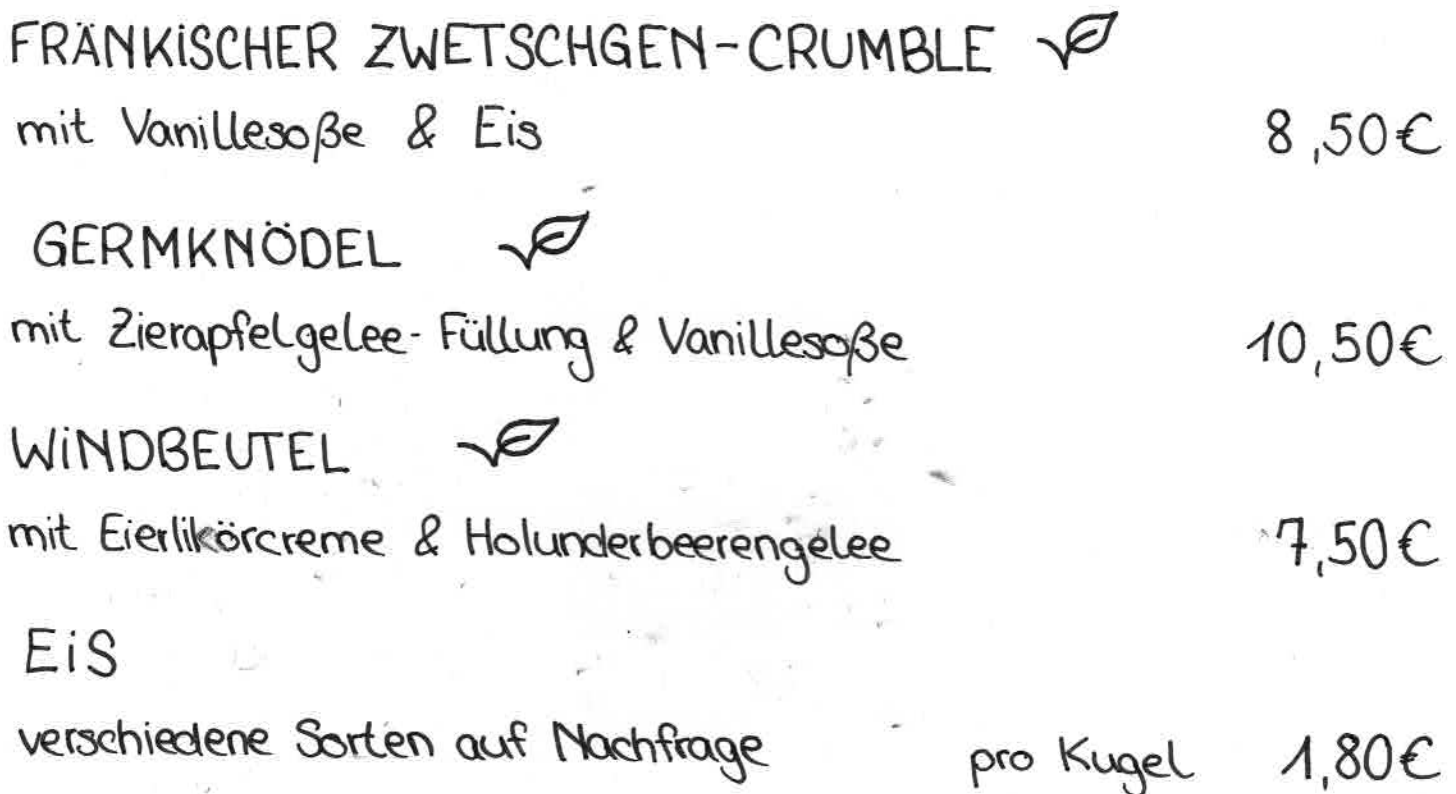 FRÄNKISCHER ZWETSCHGEN-CRUMBLE
mit Vanillesoße & Eis 8,50€
GERMKNÖDEL
mit Zierapfelgelee-Füllung & Vanillesoße 10,50€
WINDBEUTEL
mit Eierlikörcreme & Holunderbeerengelee 7,50€
EiS
verschiedene Sorten auf Nachfrage pro Kugel 1,80€